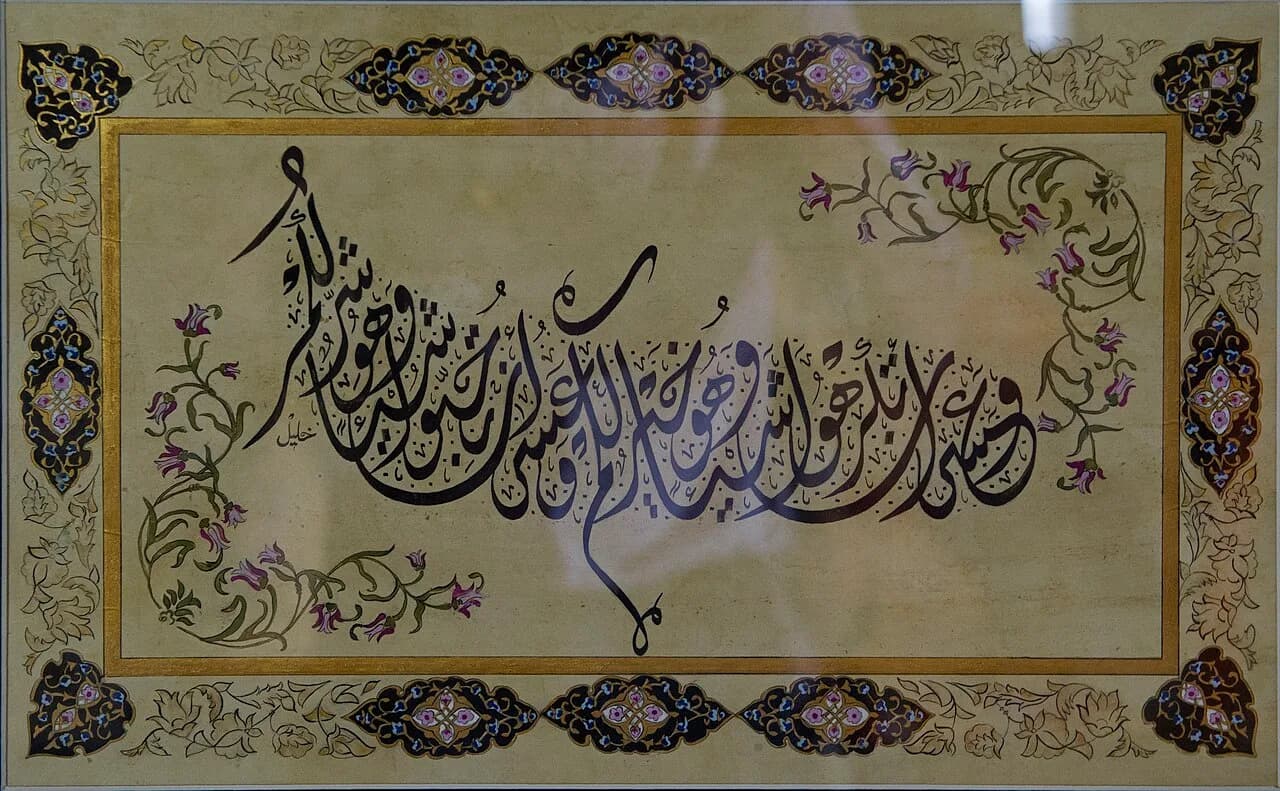 وعسى أن تكرهوا شيئا وهو خير لكم وعسى أن تحبوا شيئا وهو شر لكم
خليل